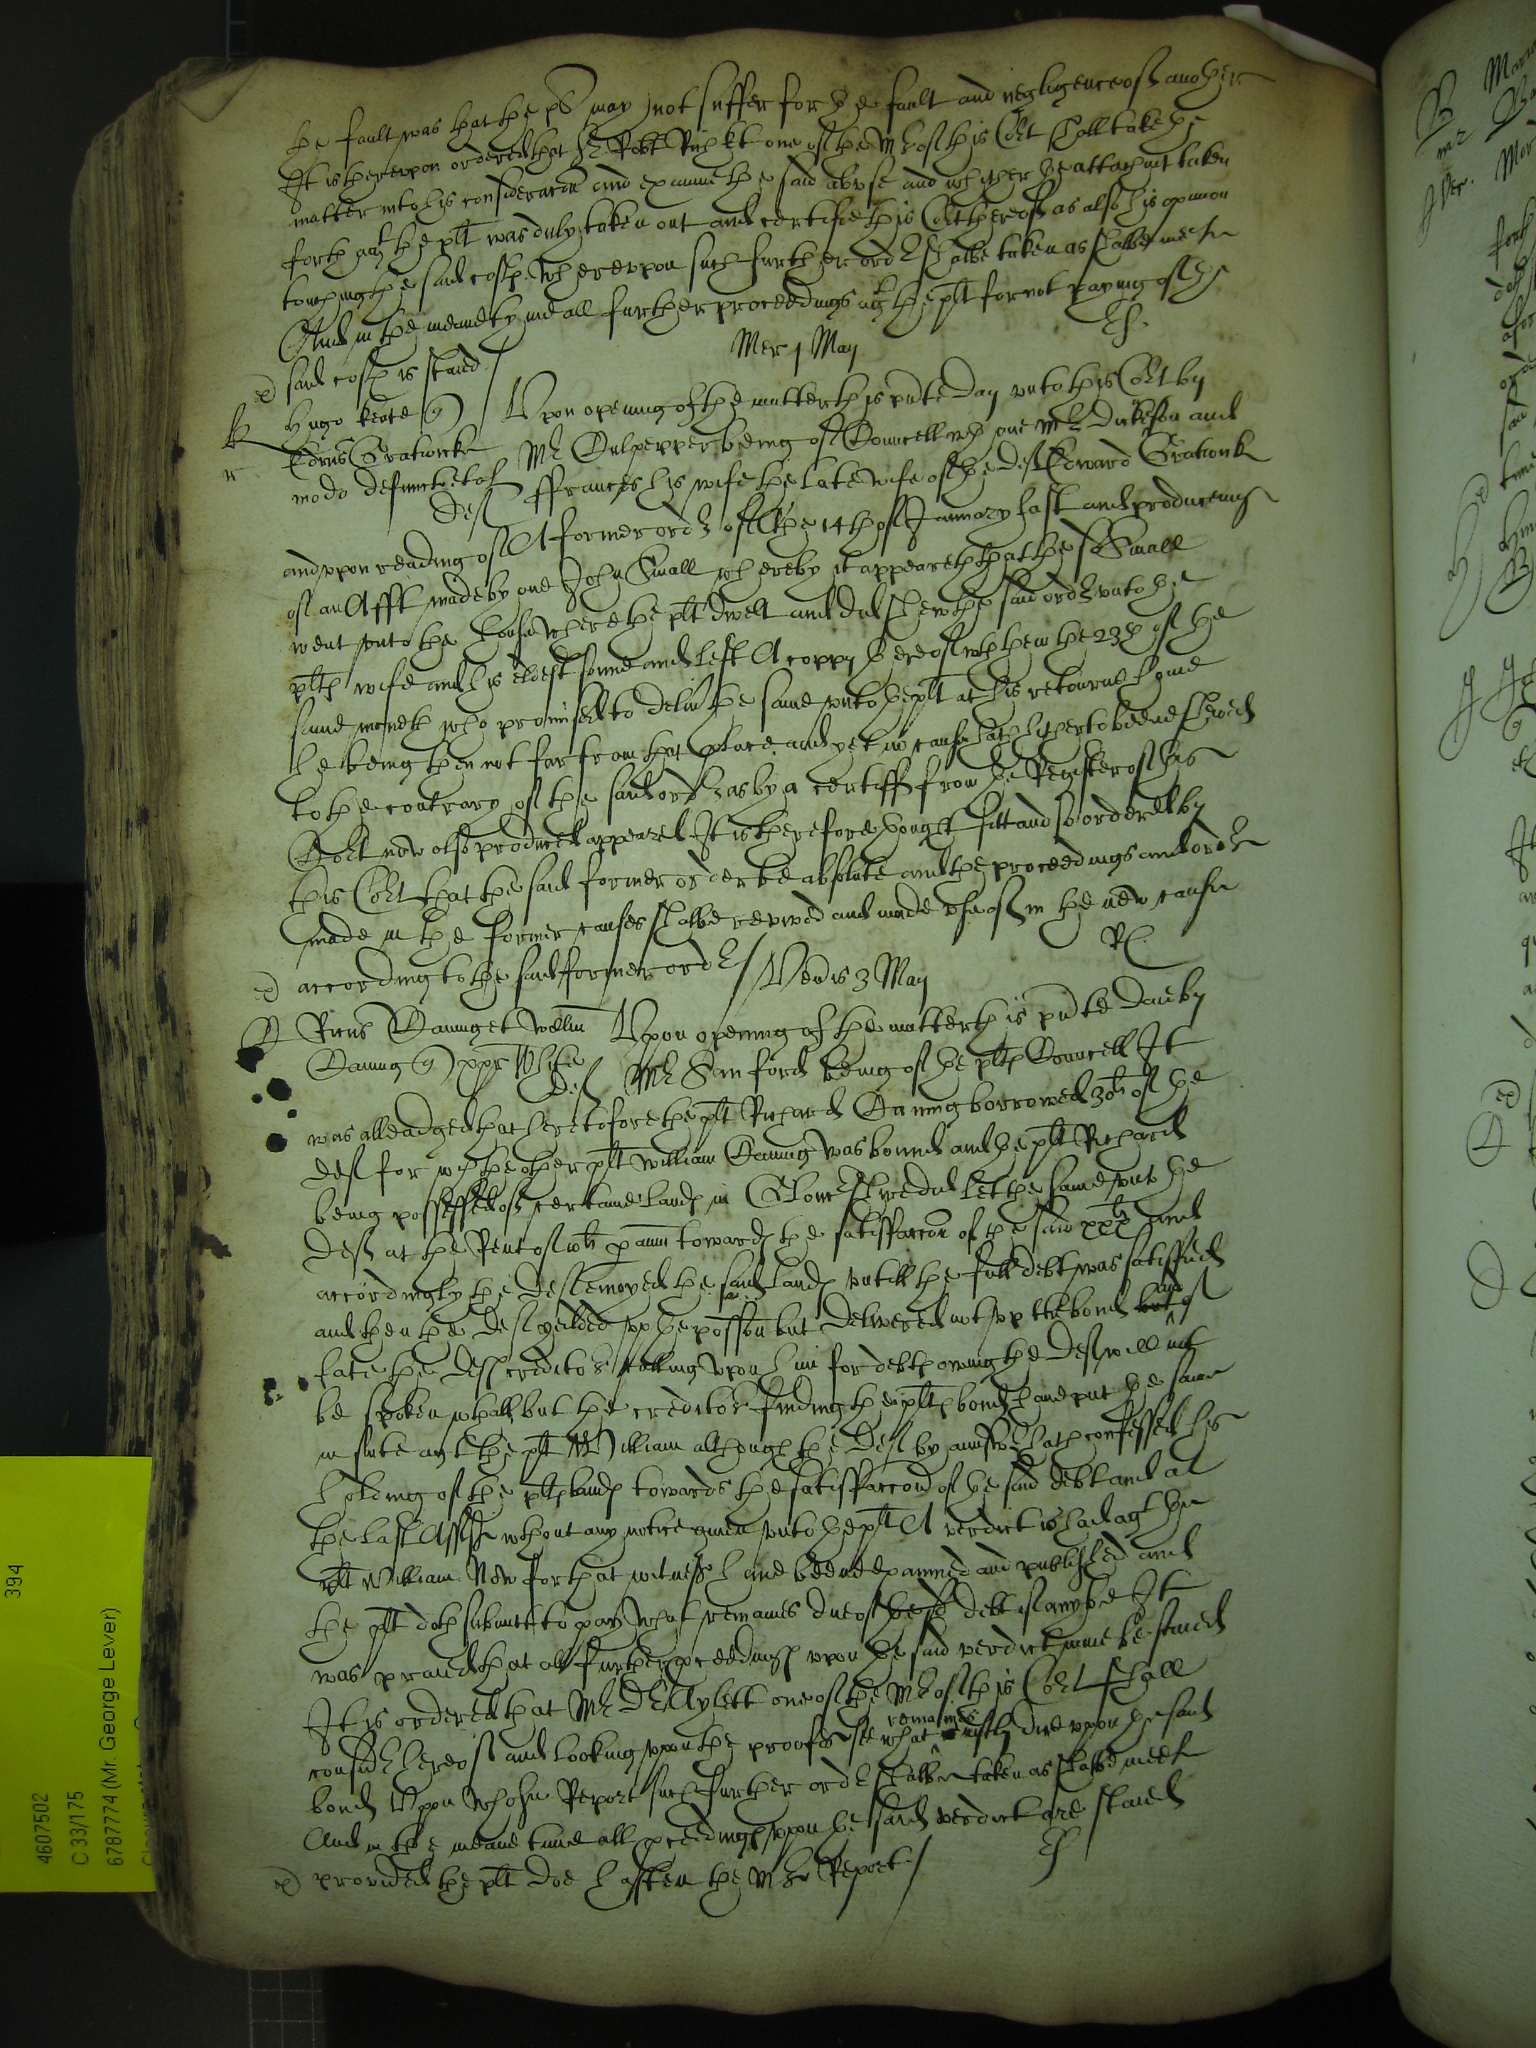 the fault was that the plt may not suffer for the fault and negligence of another
It is therevpon ordered that Sr Robt Rich kt one of the Mrs of this Cort shall take the
matter into his consideracon and examine the said abvse and whether the attachmt taken
forth agt the plt was duly taken out and certifie this Cort thereof as also his opinion
touching the said costs wherevpon such further order shalbe taken as shalbe meete
And in the meanetyme all further proceedings agt the plt for not paying of the
said costs is staied
Mer 1 May
Hugo Keate
Edrus Gratwicke
modo defunct et al
Def
Vpon opening of the matter this pnte day vnto this Cort by
Mr Culpepper being of Councell wth one Mr Dickeson and
ffrancys his wife the late wife of the def Edward Gratwick
and vpon reading of A former order of the 14th of January last and produceing
of an Afft made by one John Small whereby it appeareth that the sd Small
went vnto the house where the plt dwelt and did shew the said order vnto the
plts wife and his eldest sonne and left A coppy thereof wth them the 23th of the
same moneth who promised to deliv the same vnto the plt at his retourne home
he being then not far from that place and yet no cause hath hitherto beene shewed
to the contrary of the said order as by a certiff from the Register of this
Cort now also produced appeared It is therefore thought fitt and so ordered by
this Cort that the said former order be absolute and the proceedings and order
made in the former causes shalbe revived and made vse of in the new cause
according to the said former order
Ven is 3 May
Ricus Caning et Wellm
Caning
Def
Vpon opening of the matter this pnte day by
Mr Sanford being of the plts Councell It
was alleadged that heretofore the plt Richard Caning borrowed 30li of the
def for wch the other plt William Caning was bound and the plt Richard
being possessed of certaine lands in Glouc shire did let the same vnto the
Def at the Rent of p annu towards the satisfaccon of the said xxxli and
accordingly the Def enioyed the said lands vntill the full debt was satisfied
and then the Def yeilded vp the possion but delivered not vp the bond and of
late the Defs creditors calling vpon him for debts owing the Def will not
be spoken wthall but the creditors finding the plts bond have put the same
in suite agt the plt William although the Def by answer hath confessed his
holding of the plts lands towards the satisfaccon of the said debt and at
the last Assises wthout any notice given vnto the plt A verdict is had agt the
plt William Now forthat witnesses have beene examined and published and
the plt doth submitt to pay what remaines due of the sd debt if any be It
was praied that all further proceedings vpon the said verdict maie be staied
It is ordered that Mr Dr Aylett one of the Mrs of this Cort shall
consider hereof and looking vpon the proofes see what remaines iustly due vpon the said
bond Vpon whose Report such further order shalbe taken as shalbe meete
And in the meane time all proceedings vpon the said verdict are staied
provided the plt doe hasten the Mrs Report
394
4607502
C 33/175
6787774 (Mr. George Lever)